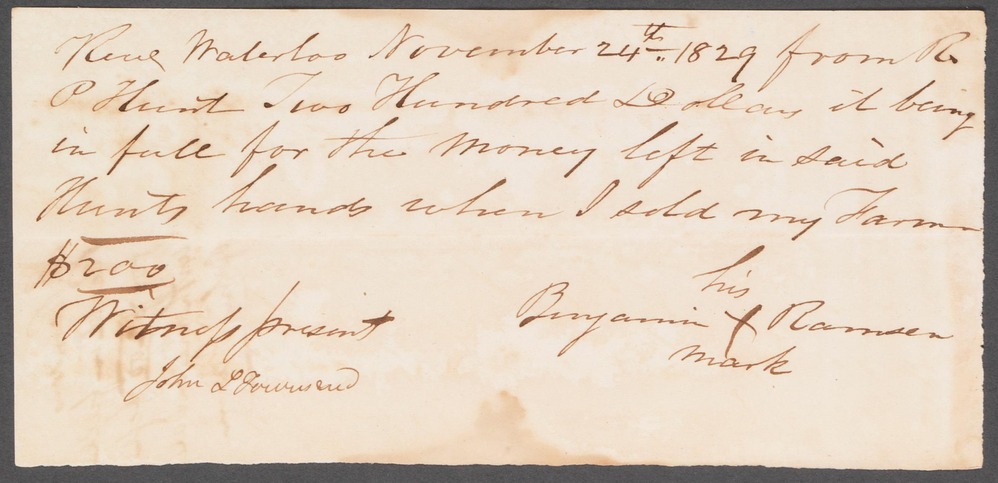 Recd Waterloo November 24th 1829 from R
P Hunt Two Hundred Dollars it being
in full for the Money left in said
Hunts hands when I sold my Farm
$200
his
Witness present Benjamin X Ramsen
mark
John L Townsend